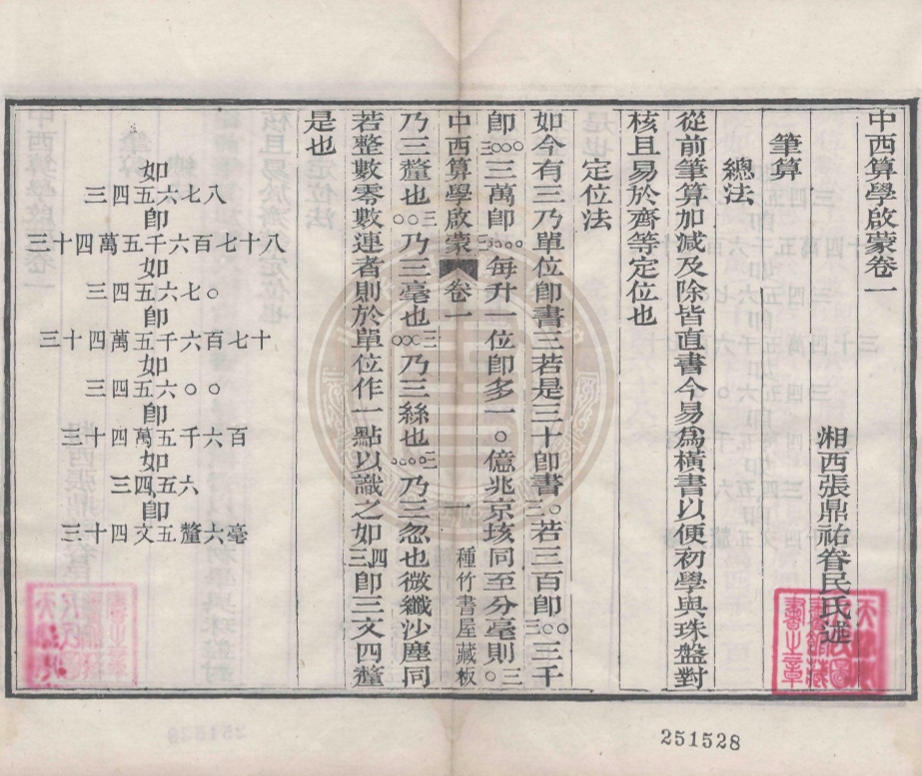 中西算學啟蒙卷一
湘西張鼎祐眷民氏述
筆算
總法
從前筆算加減及除皆直書今易爲橫書以便初學與珠盤對
核且易於齊等定位也
定位法
如今有三乃單位卽書三若是三十卽書三○若三百卽三○○三千
卽三○○○三萬卽三○○○○每升一位卽多一○億兆京垓同至分毫則○三
中西算學啟蒙 卷一 一 種竹書屋藏板
乃三釐也○○三乃三毫也○○○三乃三絲也○○○○三乃三忽也微纖沙塵同
若整數零數連者則於單位作一點以識之如三.四卽三文四釐
是也
如
三四五六七八
卽
三十四萬五千六百七十八
如
三四五六七○
卽
三十四萬五千六百七十
如
三四五六○○
卽
三十四萬五千六百
如
三四五六
卽
三十四文五釐六毫
251528